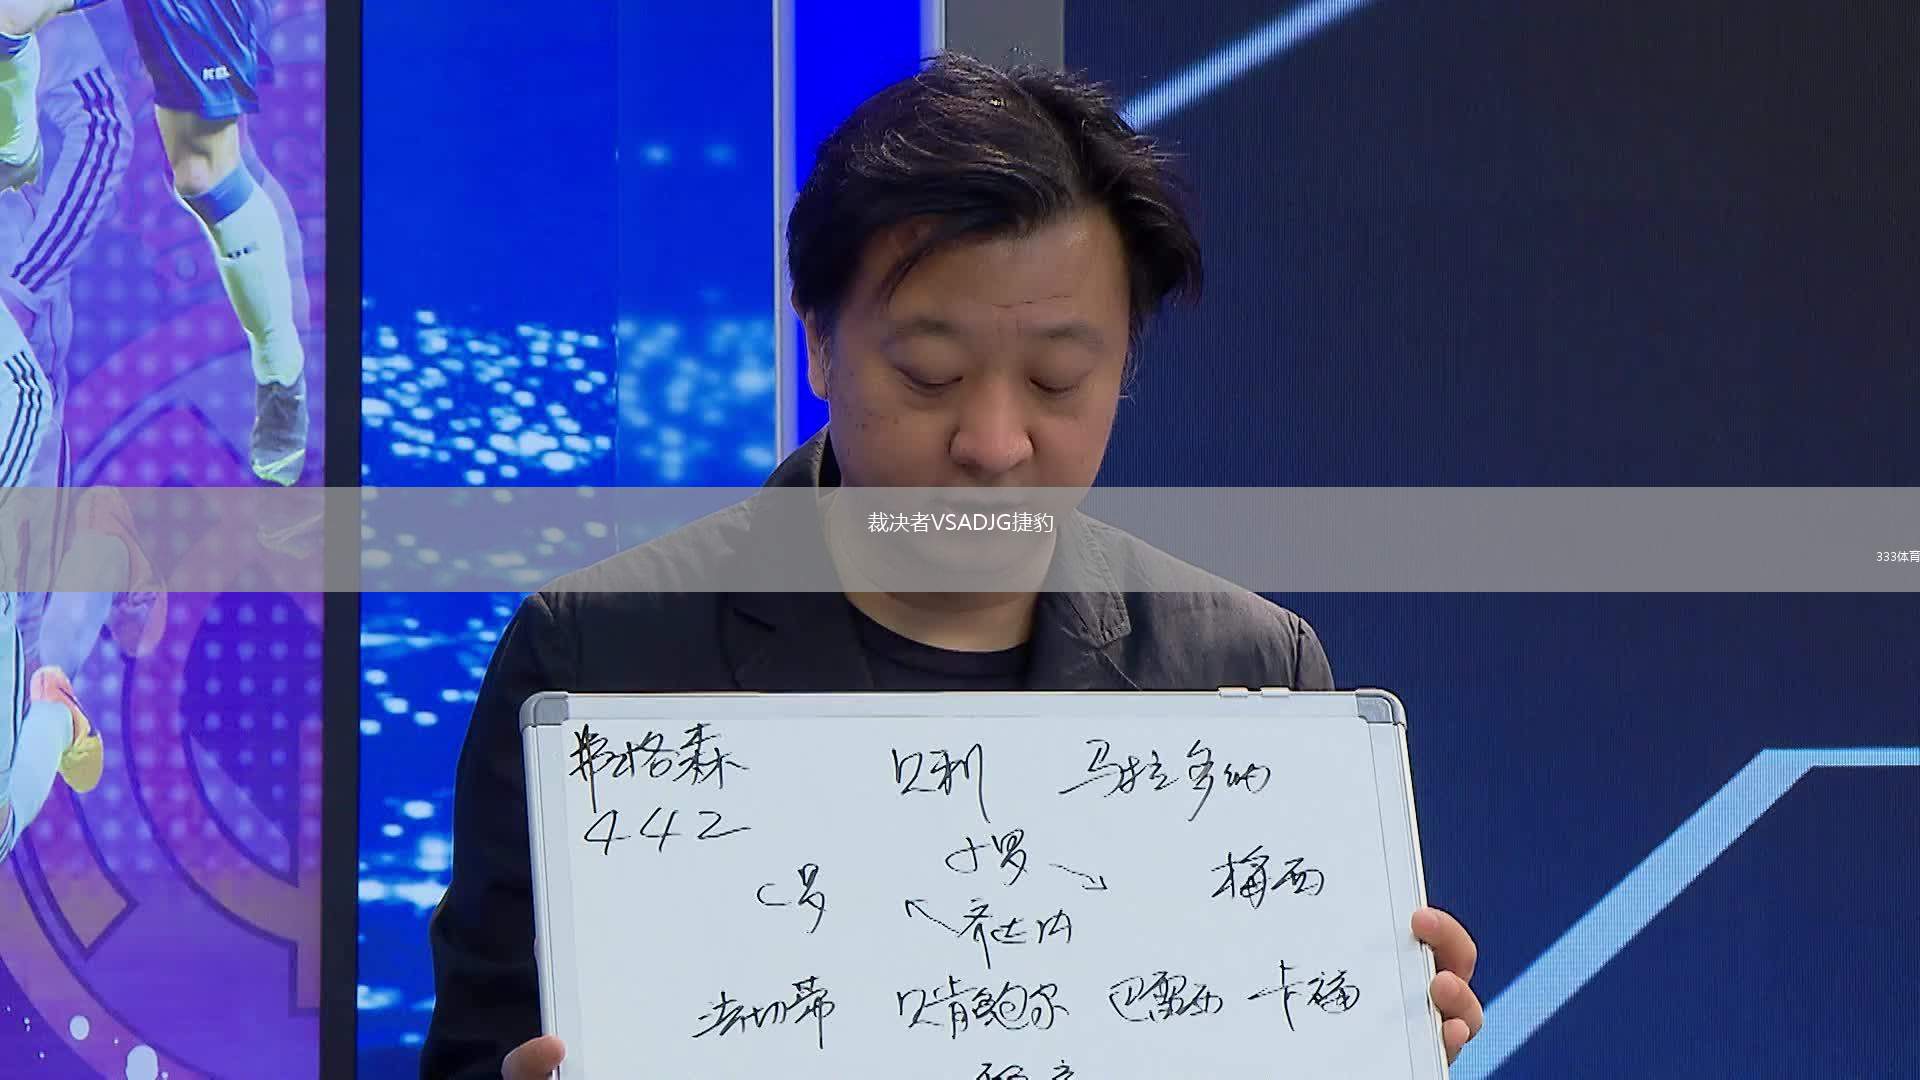 KEL
裁决者VSADJG捷豹
333体育
弗格森 贝利 马拉多纳
442
小罗
C罗 梅西
齐达内
法切蒂 贝肯鲍尔 巴雷西 卡福